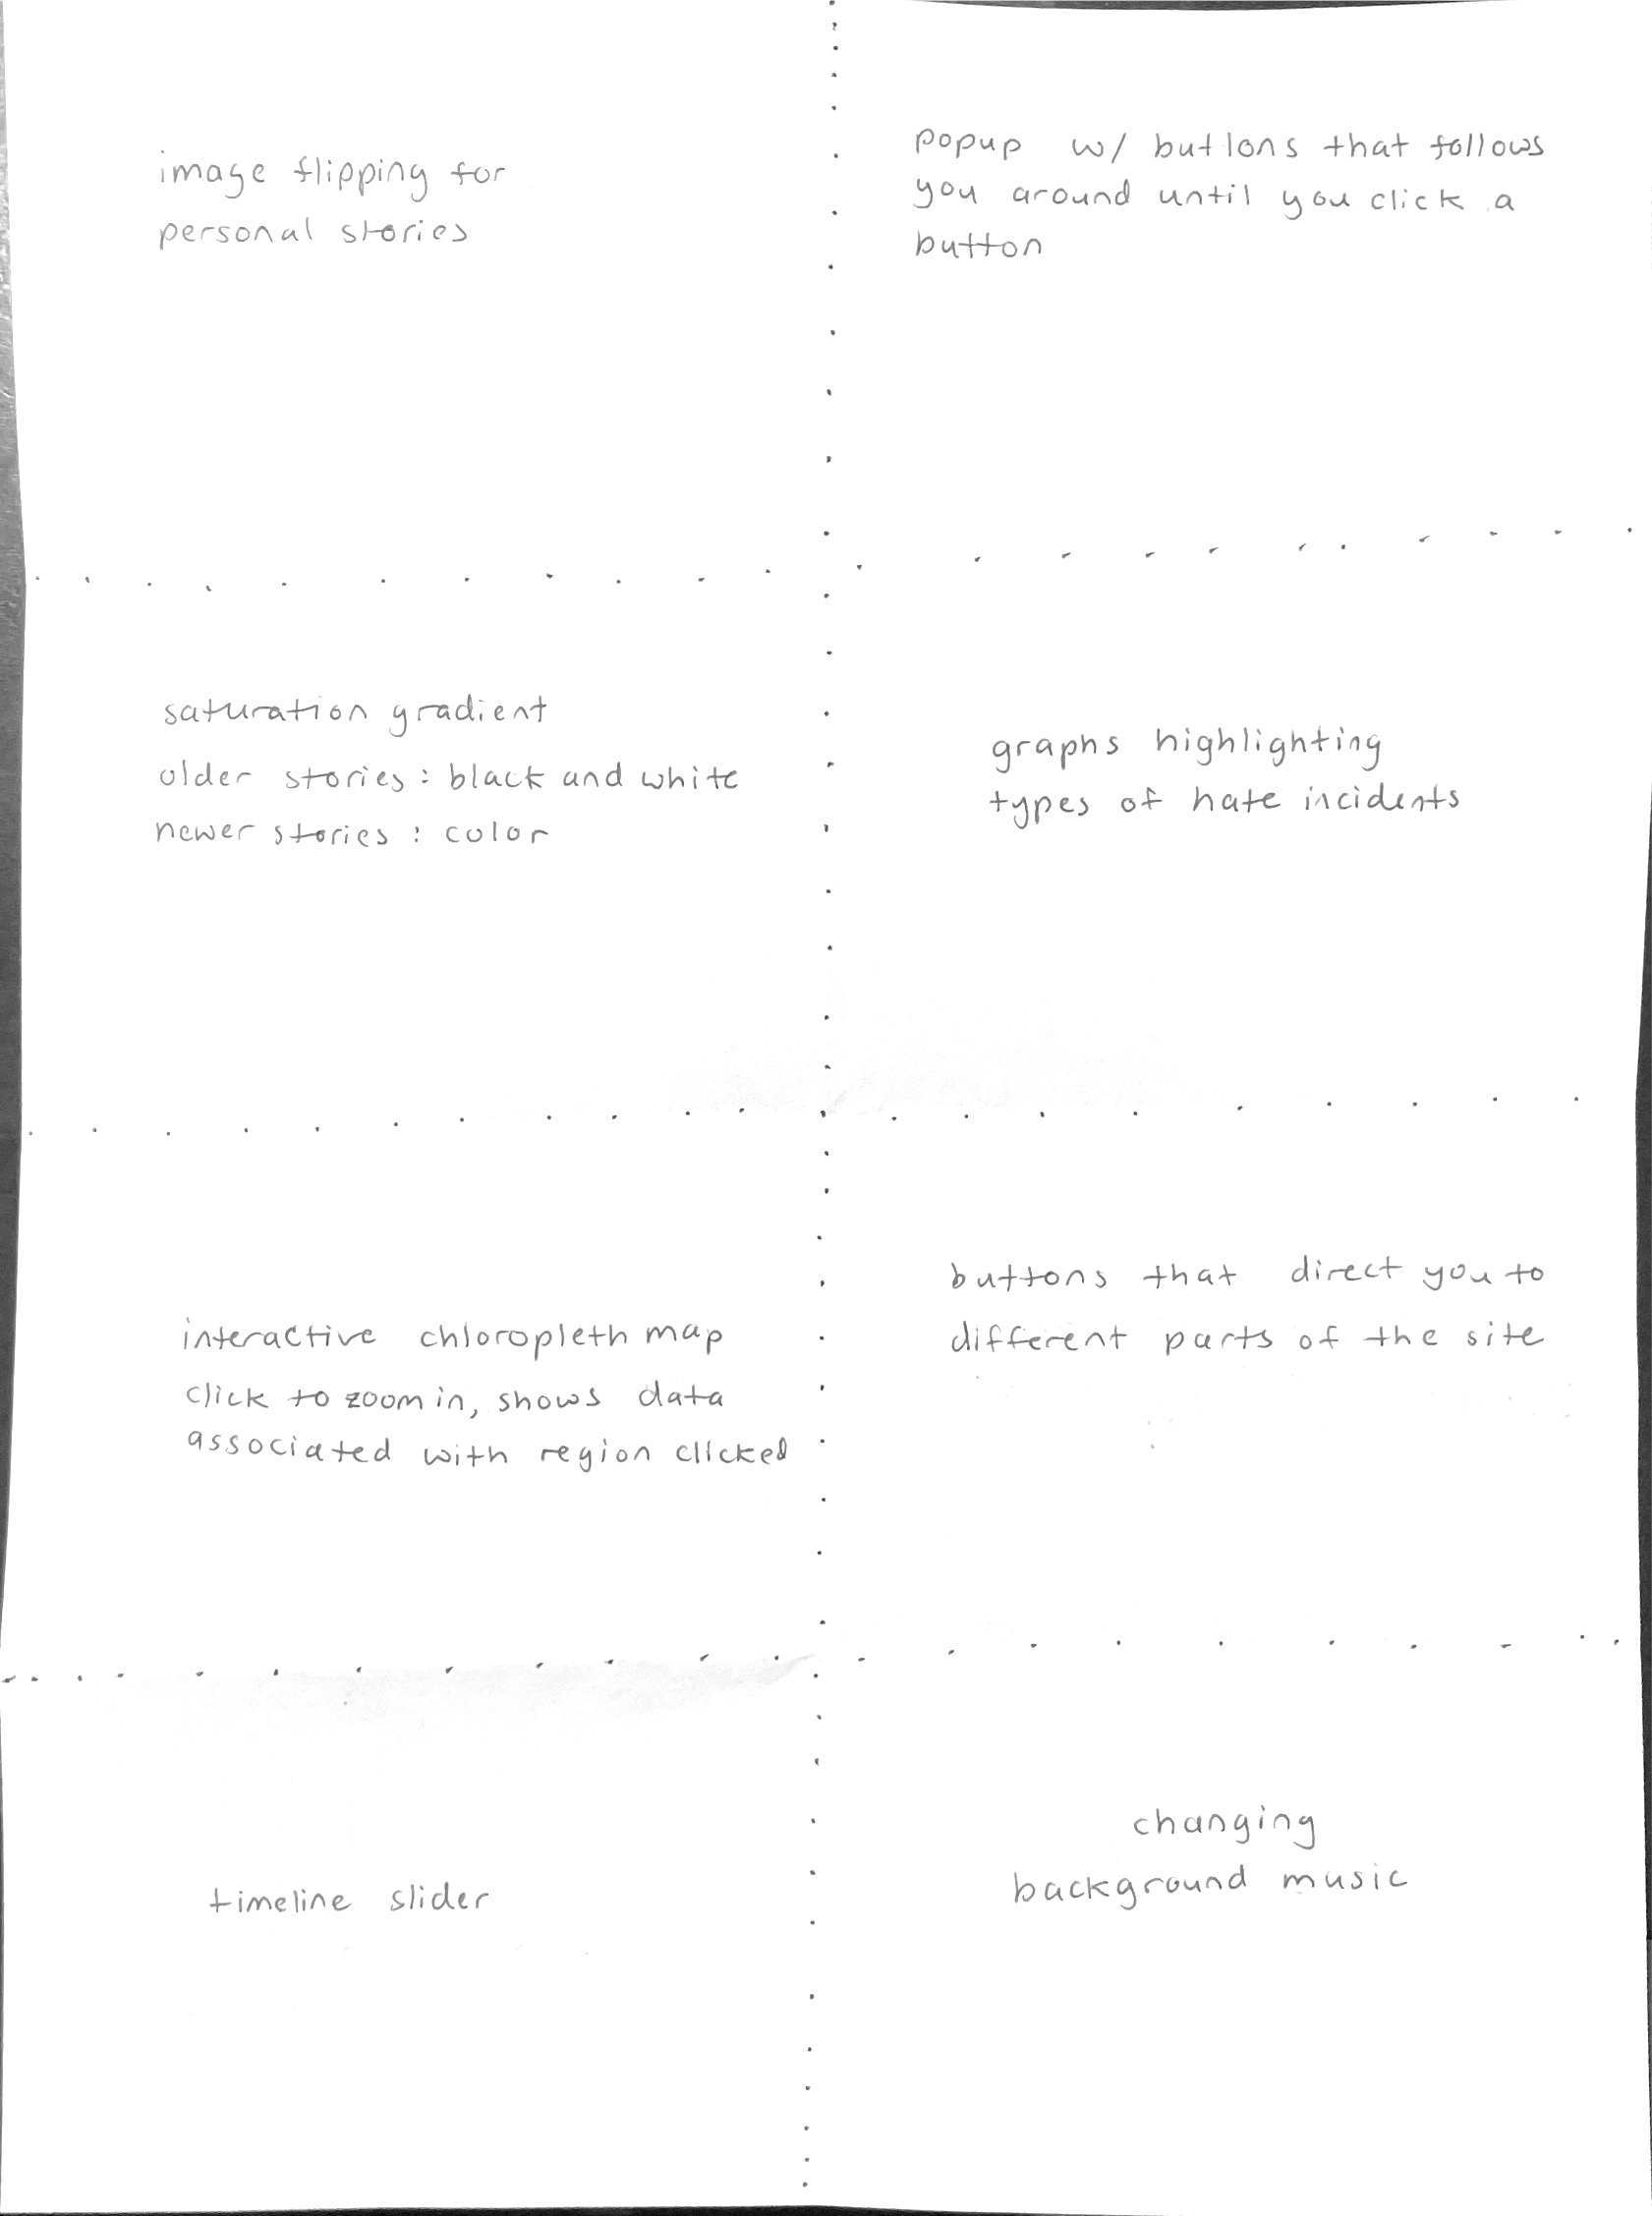 image flipping for
personal stories
popup w/ buttons that follows
you around until you click a
button
saturation gradient
older stories: black and white
newer stories: color
graphs highlighting
types of hate incidents
interactive chloropleth map
click to zoom in, shows data
associated with region clicked
buttons that direct you to
different parts of the site
timeline slider
changing
background music